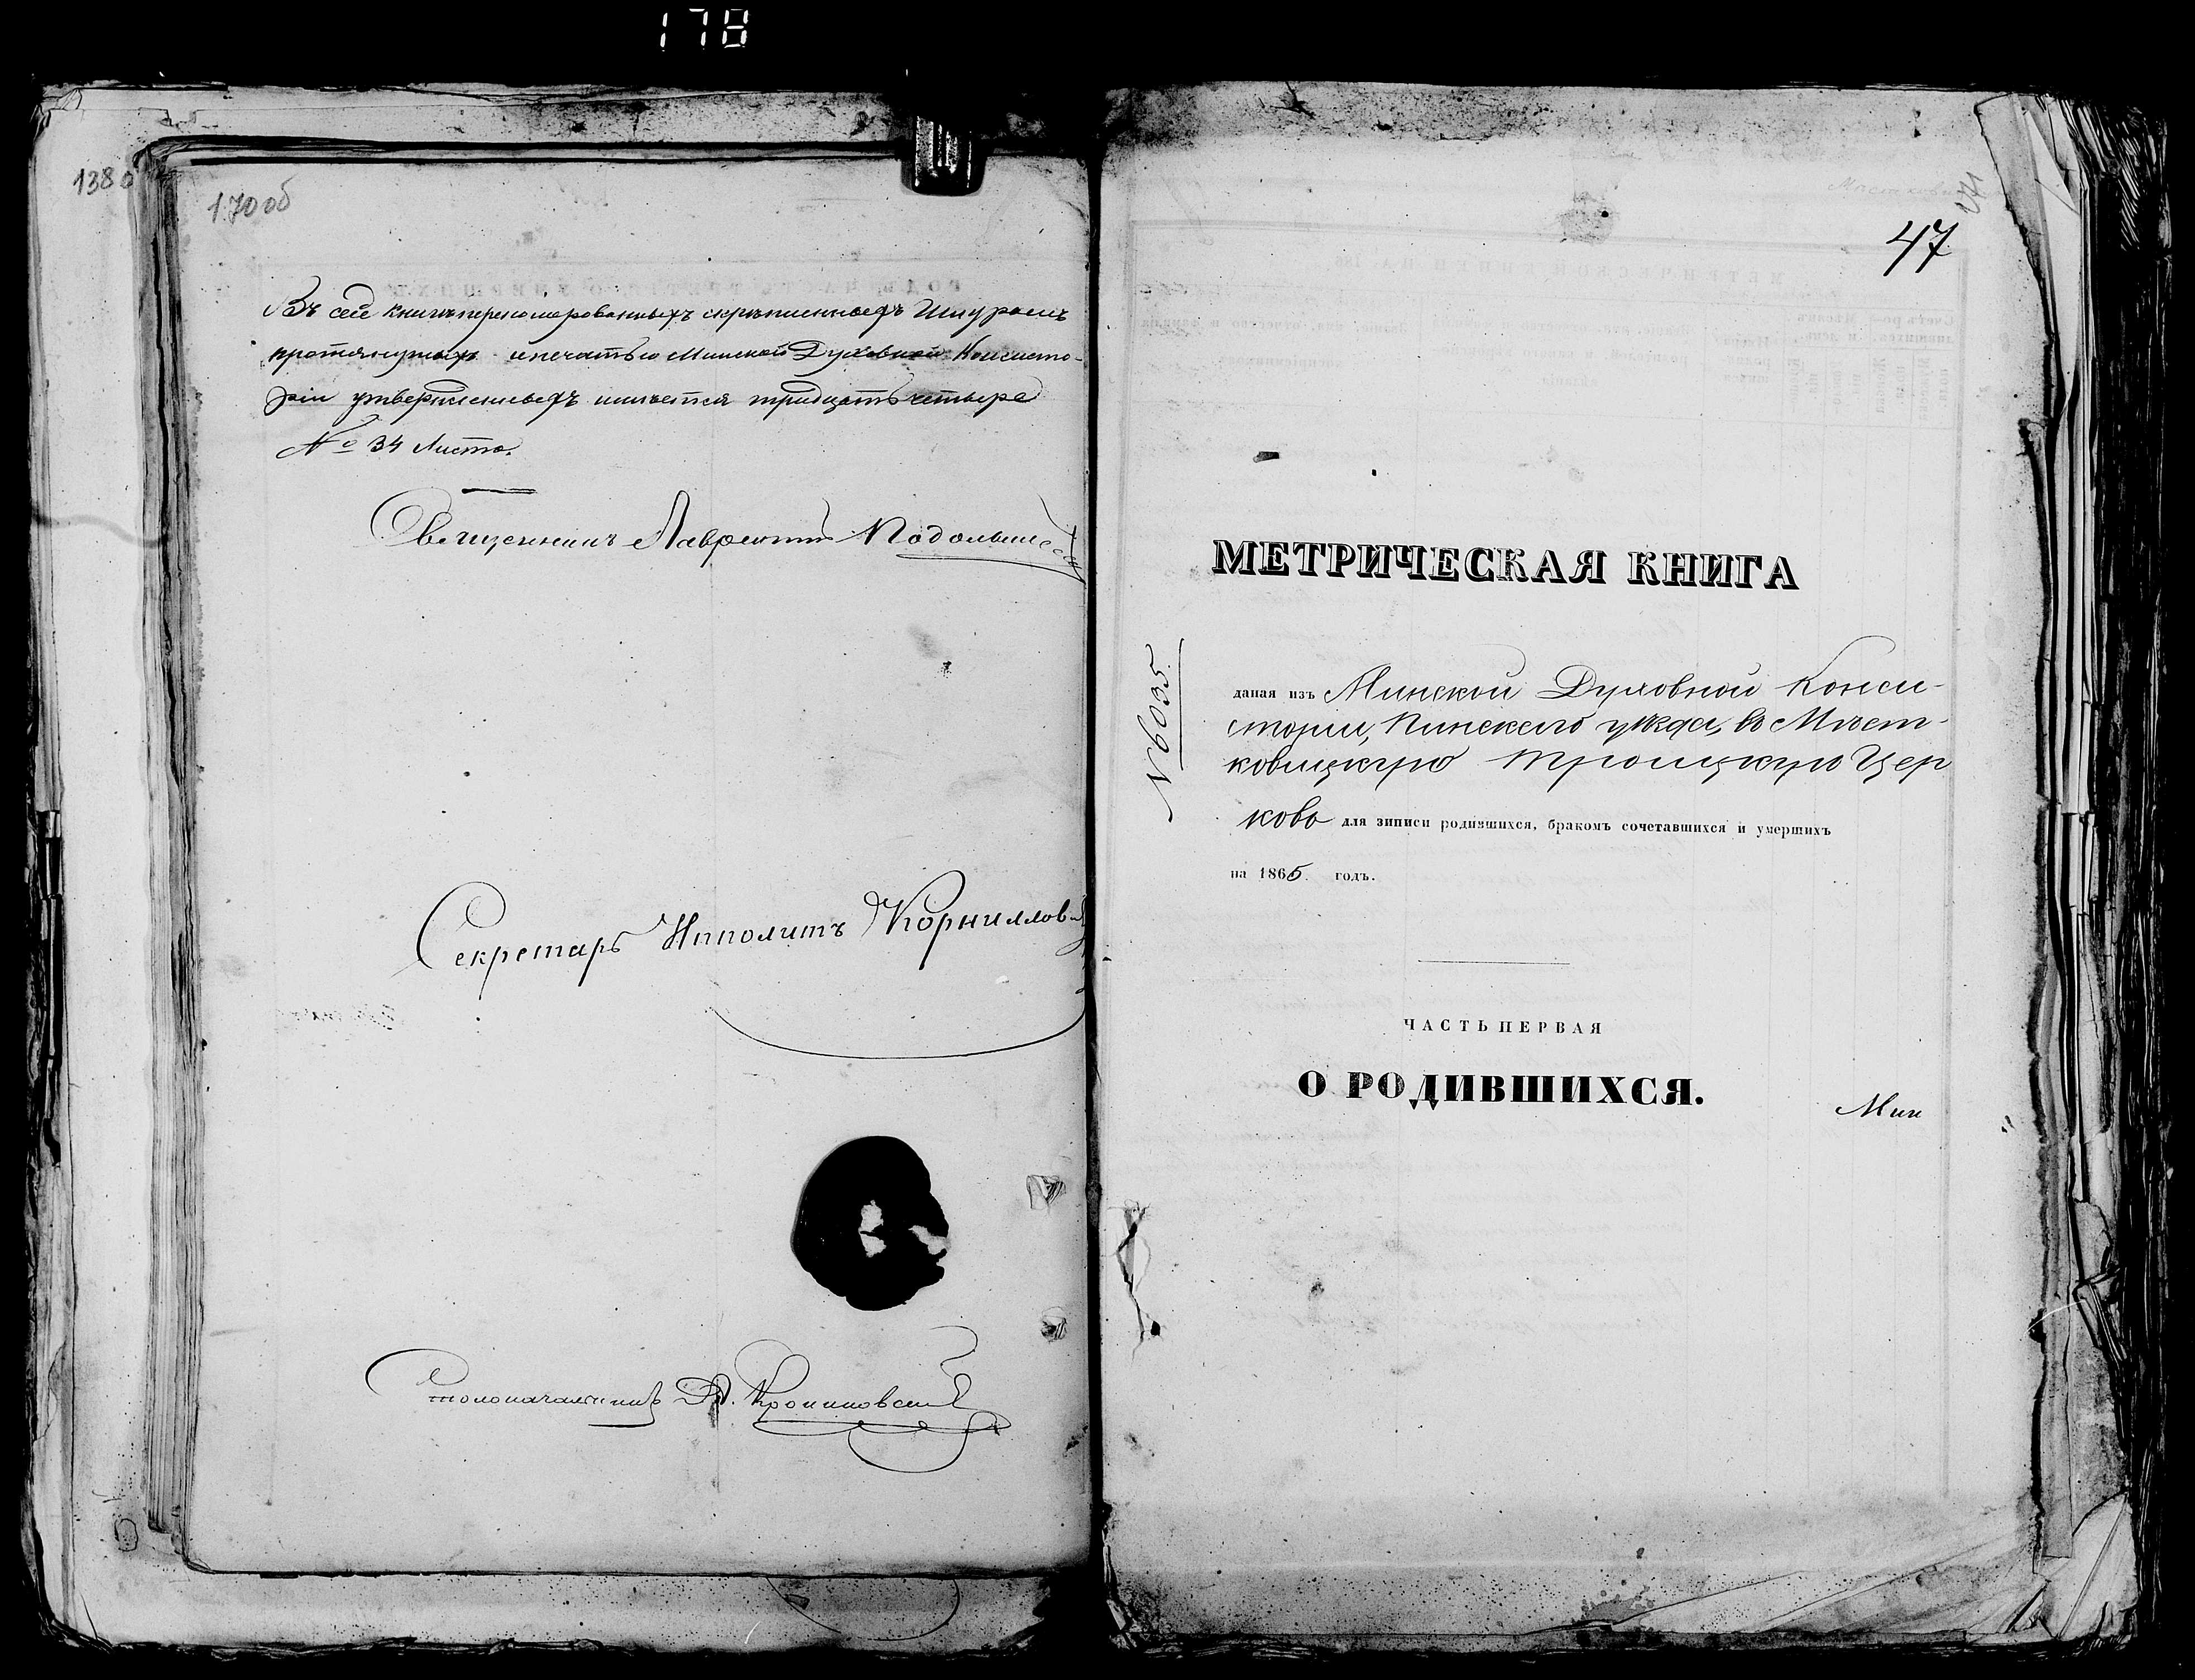 178
1380
170об
Въ сей книгѣ переномерованныхъ скрѣпленныхъ Шнуромъ
протянутыхъ и печатью Минской Духовной Консисто-
ріи утвержденныхъ имѣется тридцать четыре
№ 34 Листа.
Священникъ Лаврентій
Секретарь Ипполитъ
Столоначальникъ
47
МЕТРИЧЕСКАЯ КНИГА
№ 6035.
даная изъ Минской Духовной Конси-
сторіи, Пинскаго уѣзда, въ Мѣст-
ковицкую Троицкую Цер
ковь для записи родившихся, бракомъ сочетавшихся и умершихъ
на 1865. годъ.
ЧАСТЬ ПЕРВАЯ
О РОДИВШИХСЯ.
Мин